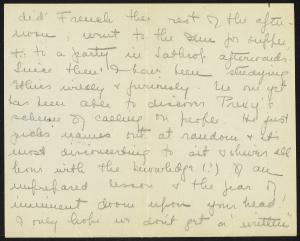 did French the rest of the after-
noon, went to the Inn for supper
& to a party in Lathrop afterwards.
Since then I have been studying
Ethics wildly & furiously. No one yet
has been able to discover Prexy's
scheme of calling on people. He just
picks names out at random & it's
most disconcerting to sit & shiver all
hour with the knowledge (?) of an
unprepared lesson & the fear of
imminent doom upon your head!
I only hope we don't get a "written"